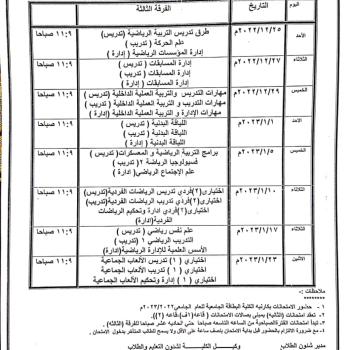 اليوم التاريخ الفرقة الثالثة
الأحد ٢٠٢٢/١٢/٢٥م طرق تدريس التربية الرياضية (تدريس) ١١:٩ صباحا
علم الحركة ( تدريب )
إدارة المؤسسات الرياضية ( إدارة )
الثلاثاء ٢٠٢٢/١٢/٢٧م إدارة المسابقات ( تدريس ) ١١:٩ صباحا
إدارة المسابقات ( تدريب )
إدارة المسابقات ( إدارة )
الخميس ٢٠٢٢/١٢/٢٩م مهارات التدريس والتربية العملية الداخلية (تدريس) ١١:٩ صباحا
مهارات التدريب و التربية العملية الداخلية (تدريب )
مهارات الإدارة و التربية العملية الداخلية ( إدارة )
الأحد ٢٠٢٣/١/١م اللياقة البدنية ( تدريس ) ١١:٩ صباحا
اللياقة البدنية ( تدريب )
اللياقة البدنية ( إدارة )
الخميس ٢٠٢٣/١/٥م برامج التربية الرياضية و المعسكرات( تدريس) ١١:٩ صباحا
فسيولوجيا الرياضة ٢ ( تدريب )
علم الإجتماع الرياضي( إدارة )
الثلاثاء ٢٠٢٣/١/١٠م اختياري(٢)فردي تدريس الرياضات الفردية(تدريس) ١١:٩ صباحا
اختياري(٢)فردي تدريب الرياضات الفردية(تدريب)
اختياري(٢)فردي إدارة وتحكيم الرياضات
الفردية(إدارة)
الثلاثاء ٢٠٢٣/١/١٧م علم نفس رياضي ( تدريس ) ١١:٩ صباحا
التدريب الرياضي ١ ( تدريب )
الأسس العلمية للإدارة الرياضية(إدارة)
الاثنين ٢٠٢٣/١/٢٣م اختياري ( ١ ) تدريس الألعاب الجماعية ١١:٩ صباحا
اختياري ( ١ ) تدريب الألعاب الجماعية
اختياري ( ١ ) إدارة وتحكيم الألعاب الجماعية
ملاحظات :-
١- حضور الامتحانات بكارنيه الكلية البطاقة الجامعية للعام الجامعي٢٠٢٣/٢٠٢٢م
٢- تعقد امتحانات (الثالثة) بمبنى بصالات الامتحانات ( قاعة(١)-قاعة (٢)).
٣- تبدأ امتحانات الفترةالصباحية من الساعة التاسعه صباحا حتى الحاديه عشر صباحا للفرقة (الثالثة ).
مدير شئون الطلاب وكيل الكلية لشئون التعليم والطلاب